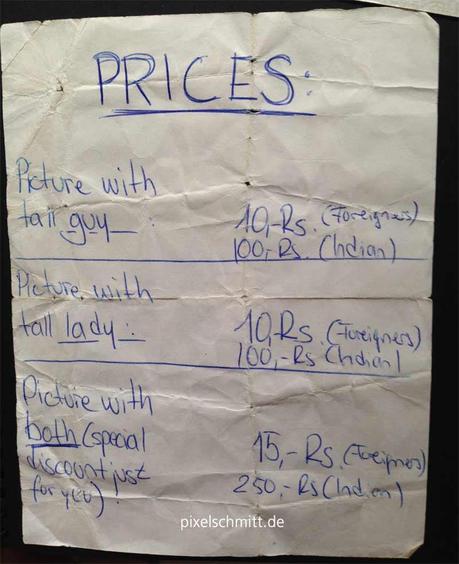 PRICES:
Picture with
tall guy :
10,-Rs. (Foreigners)
100,-Rs. (Indian)
Picture with
tall lady :
10,-Rs. (Foreigners)
100,-Rs (Indian)
Picture with
both (special
discount just
for you) !
15,-Rs. (Foreigners)
250,-Rs (Indian)
pixelschmitt.de